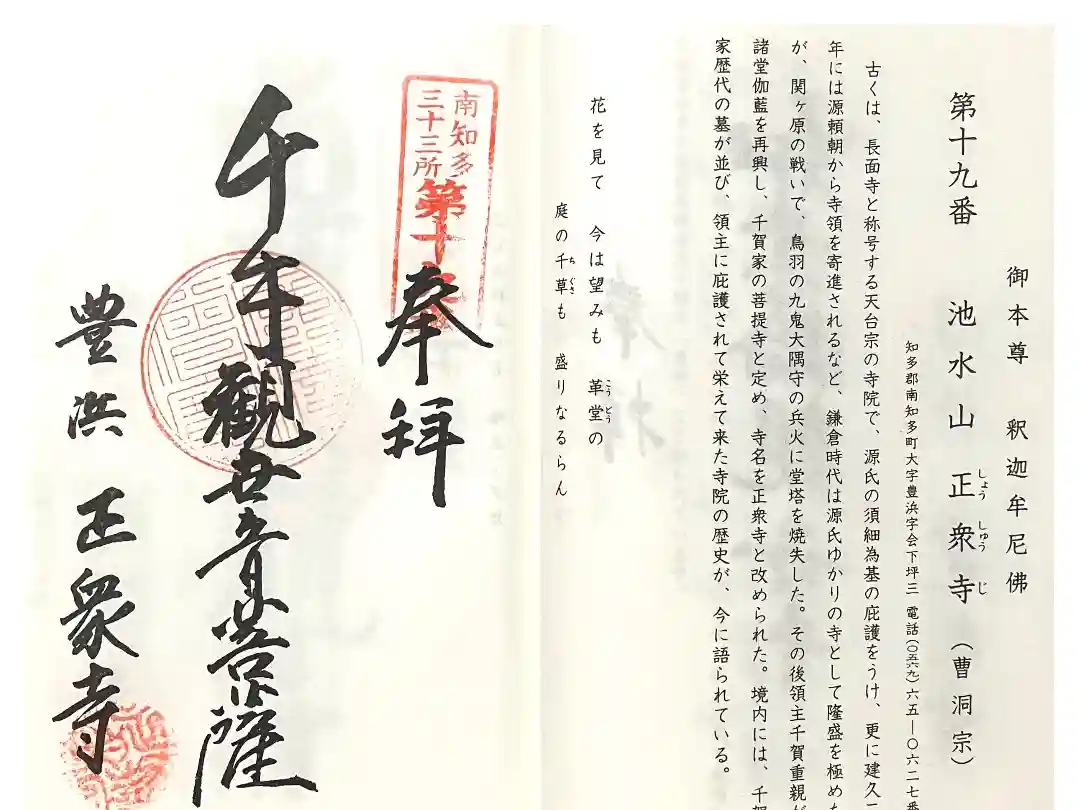 御本尊 釈迦牟尼佛
第十九番 池水山 正衆寺(曹洞宗)
しょう しゅう じ
知多郡南知多町大字豊浜字会下坪三 電話(〇五六九)六五―〇六二七番
古くは、長面寺と称号する天台宗の寺院で、源氏の須細為基の庇護をうけ、更に建久
年には源頼朝から寺領を寄進されるなど、鎌倉時代は源氏ゆかりの寺として隆盛を極め
が、関ヶ原の戦いで、鳥羽の九鬼大隅守の兵火に堂塔を焼失した。その後領主千賀重親が
諸堂伽藍を再興し、千賀家の菩提寺と定め、寺名を正衆寺と改められた。境内には、千賀
家歴代の墓が並び、領主に庇護されて栄えて来た寺院の歴史が、今に語られている。
花を見て 今は望みも 革堂の
こう どう
庭の千草も 盛りなるらん
ち ぐさ
南知多
三十三所
第十
奉拝
千手観世音菩薩
豊浜 正衆寺